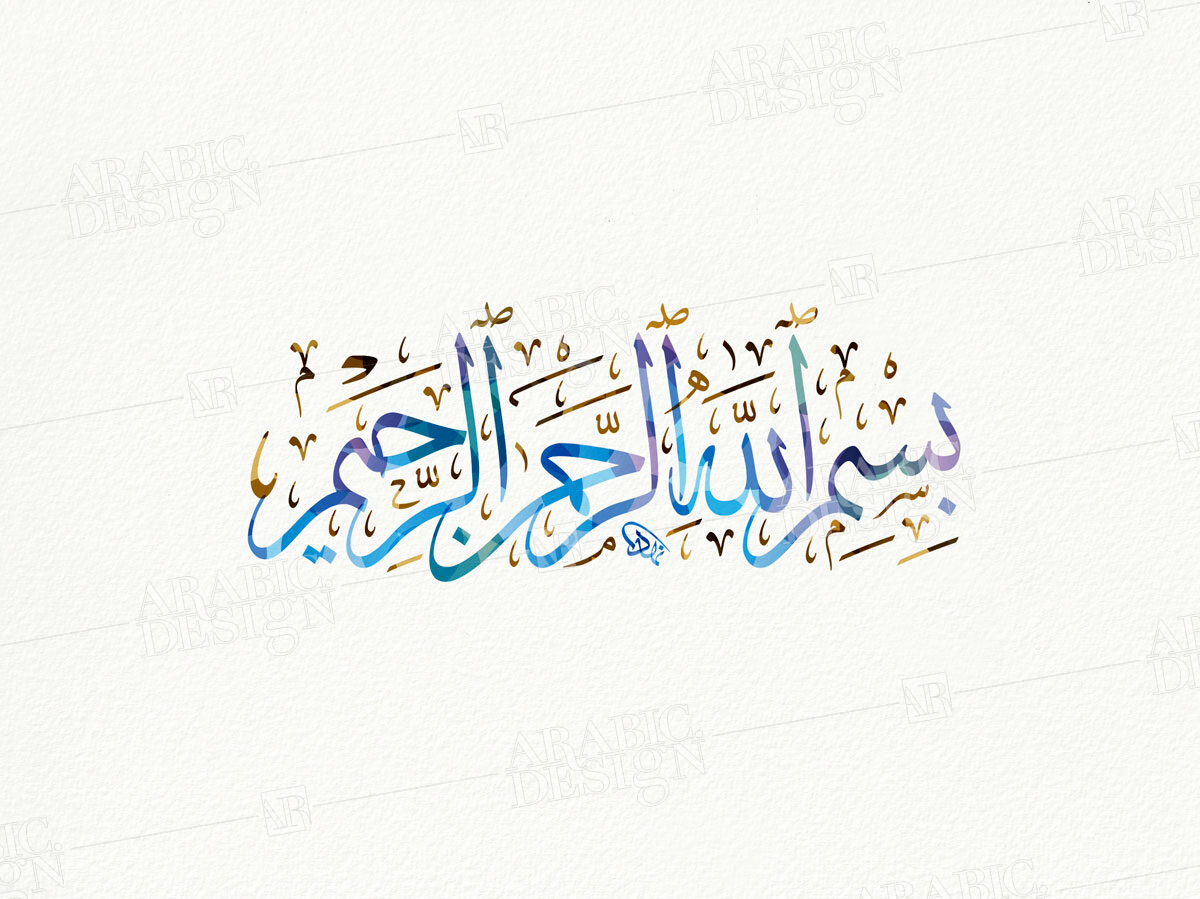 بسم الله الرحمن الرحيم
ARABIC.
DESIGN
AR